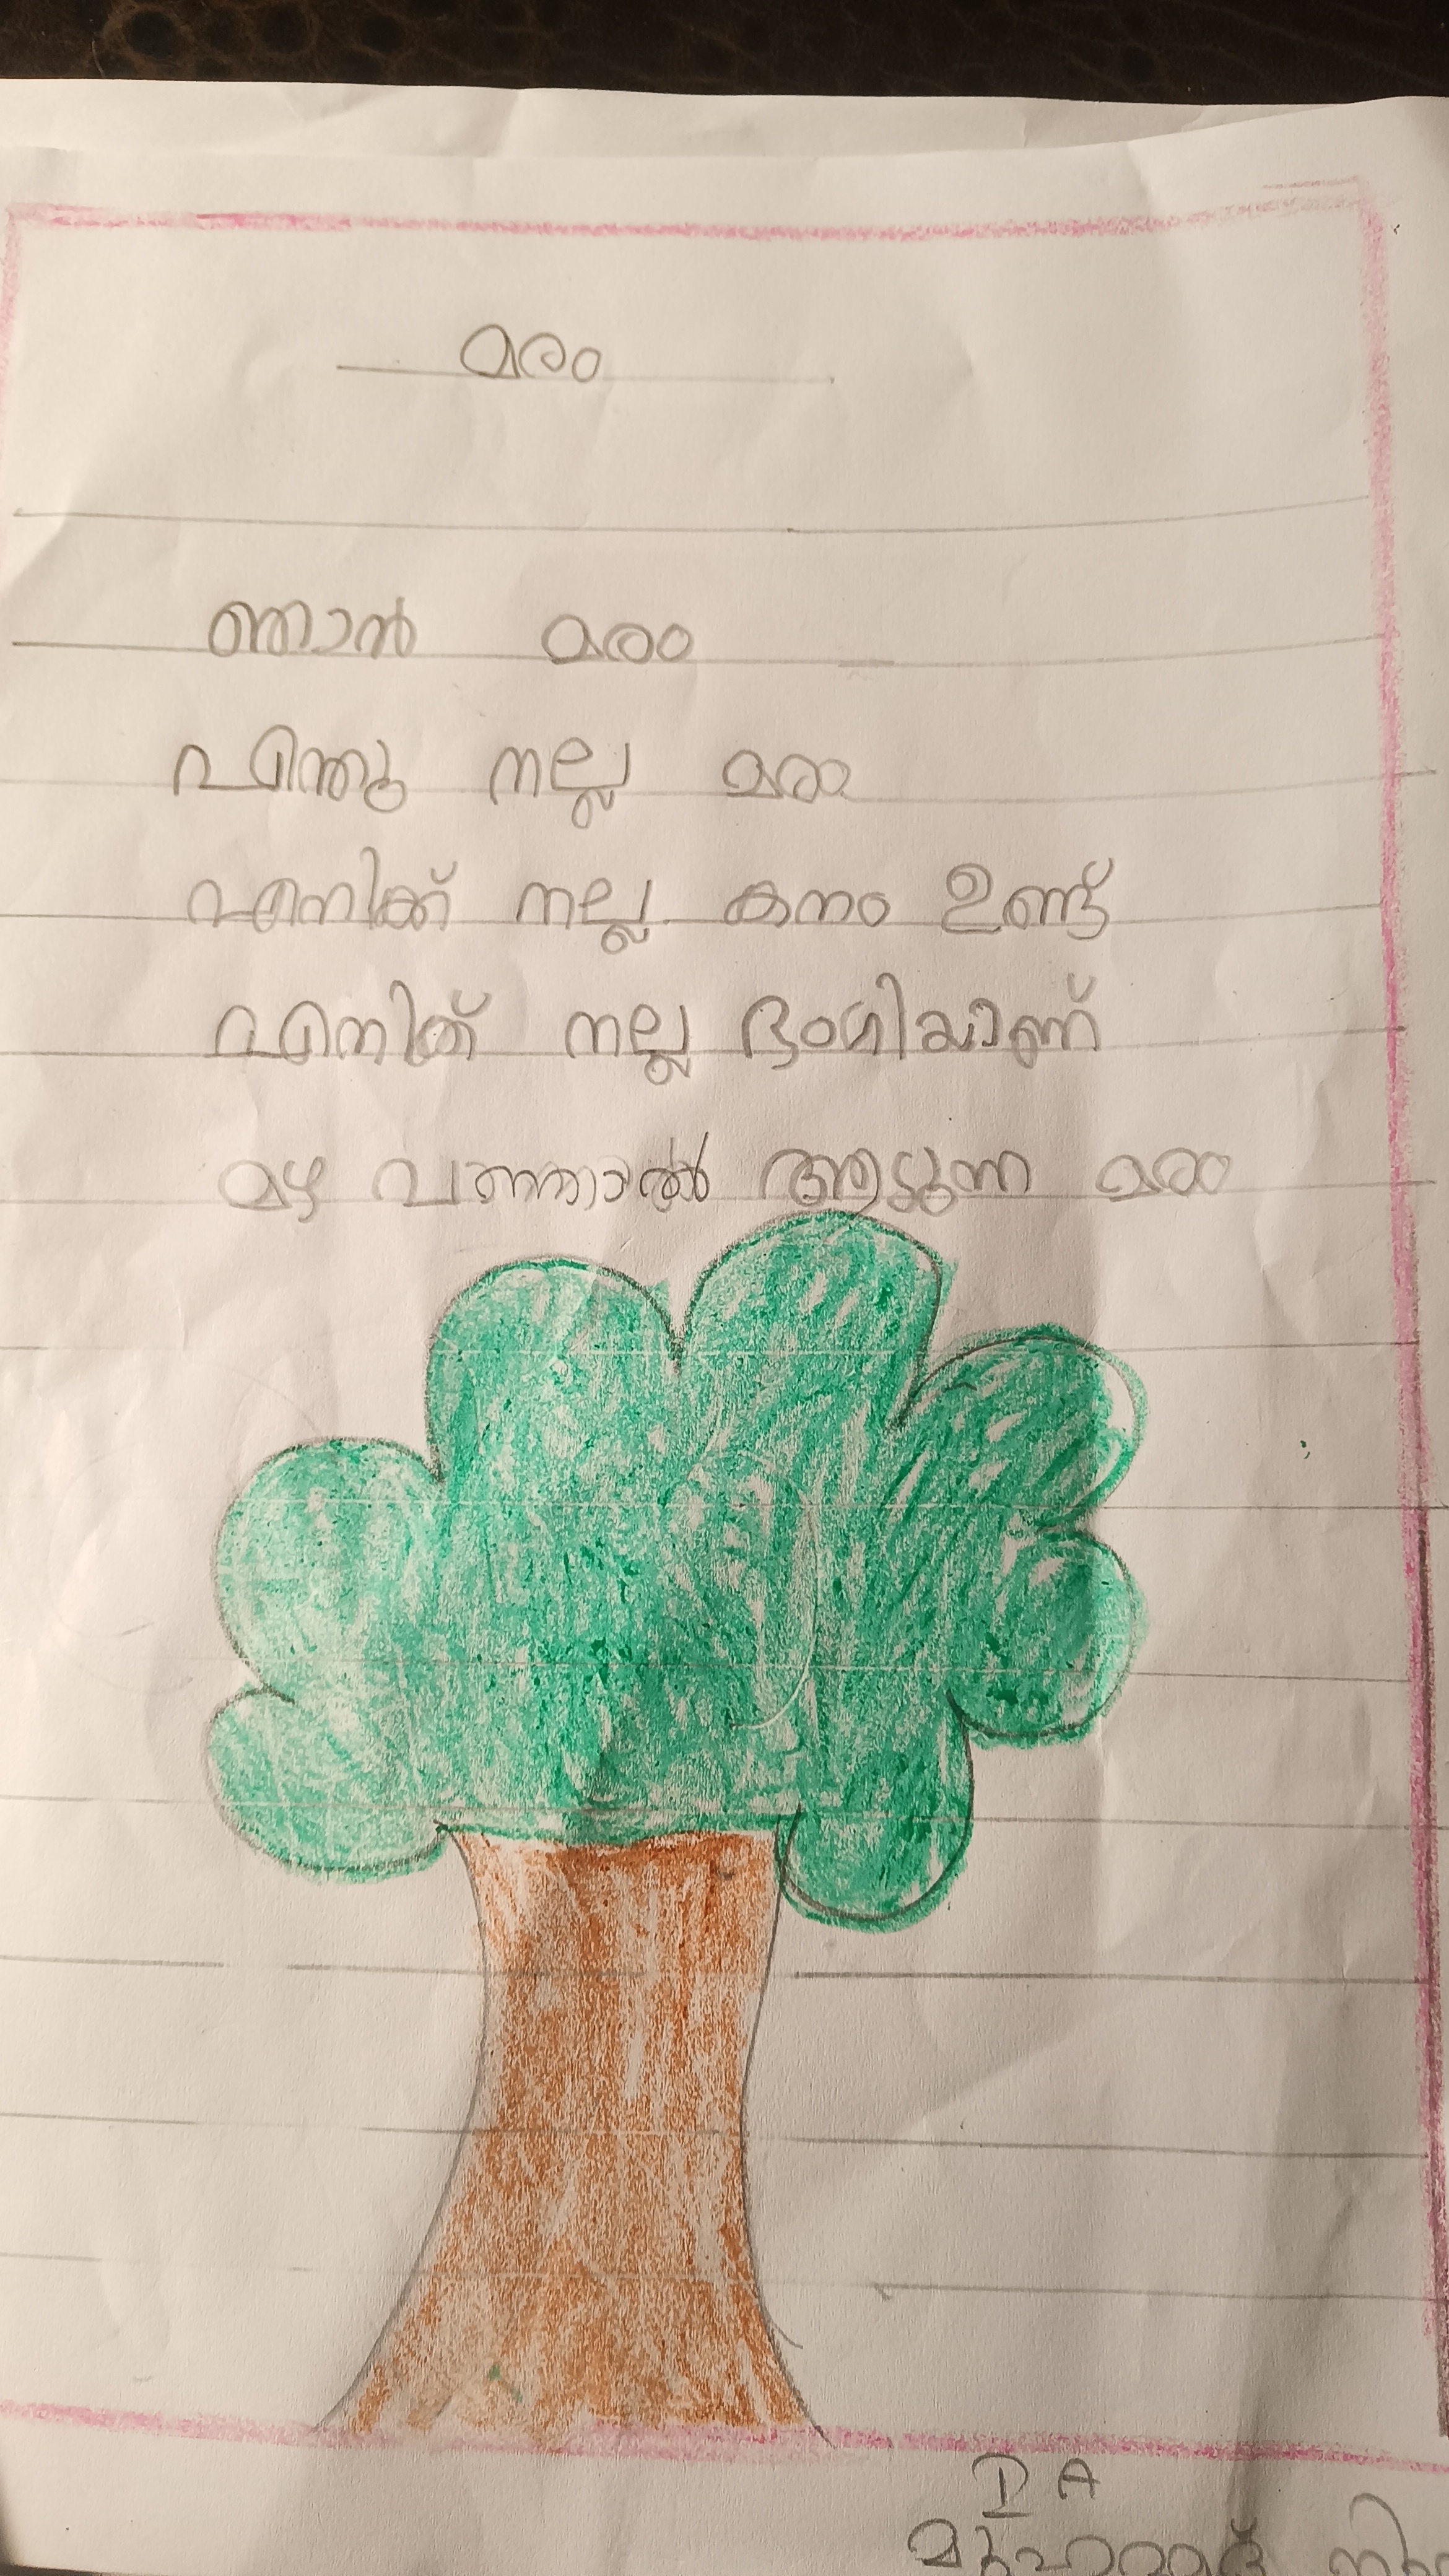 മരം
ഞാൻ മരം
എന്തു നല്ല മരം
എനിക്ക് നല്ല കനം ഉണ്ട്
എനിക് നല്ല ഭംഗിയാണ്
മഴ വന്നാൽ ആടുന്ന മരം
I A
മുഹമ്മദ്